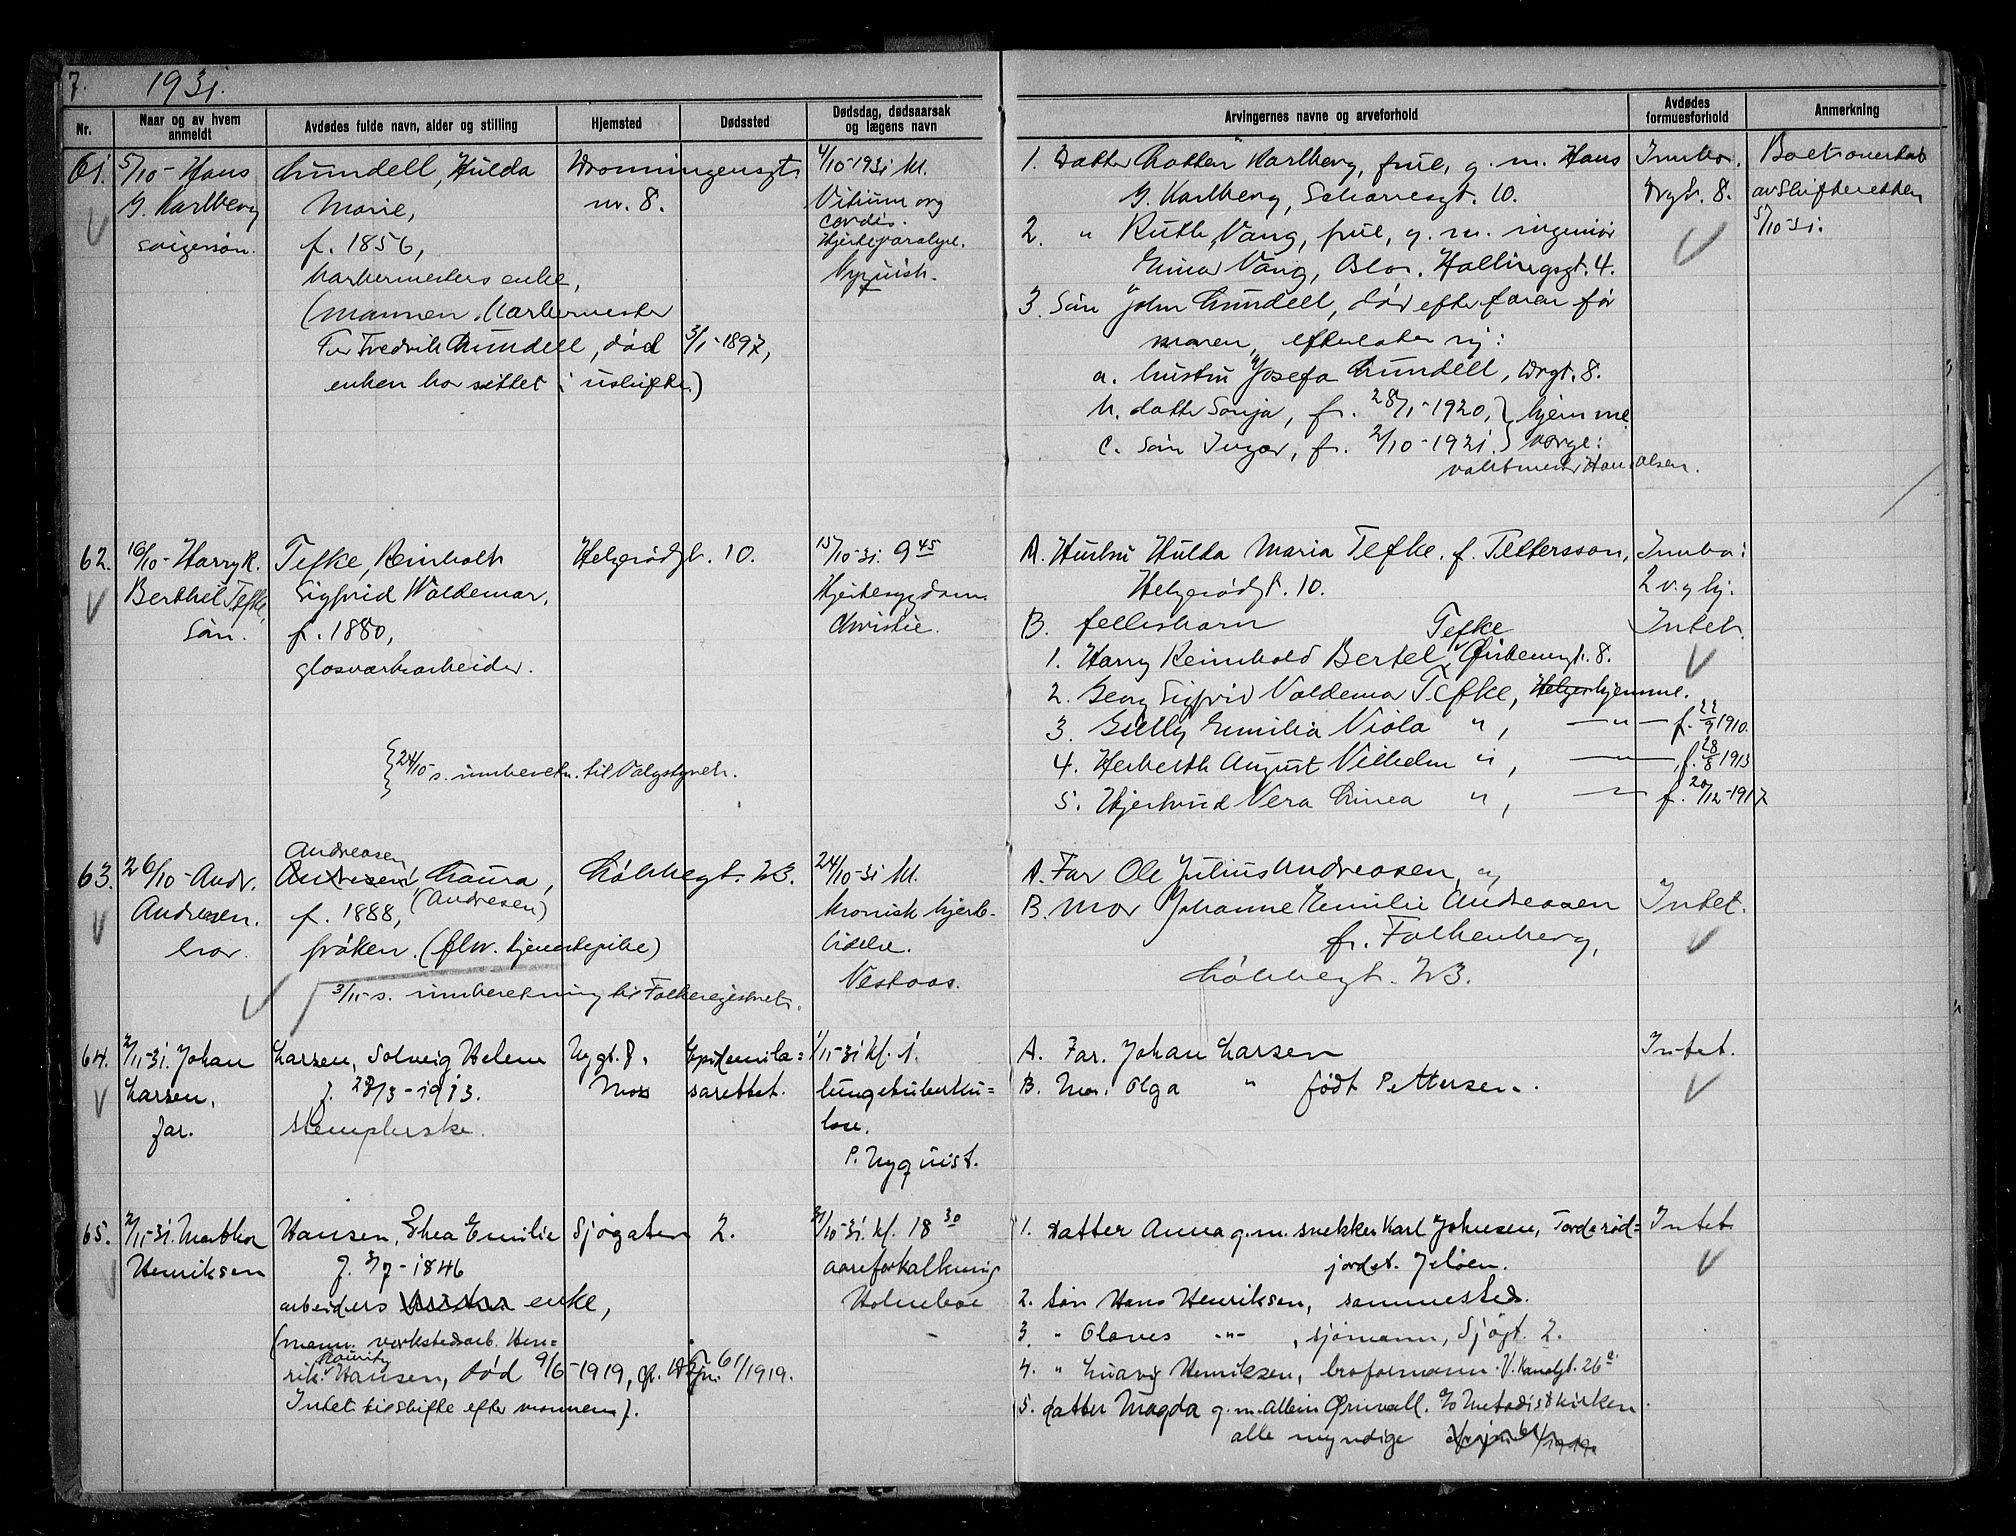 7. 1931.
Nr.
Naar og av hvem anmeldt
Avdødes fulde navn, alder og stilling
Hjemsted
Dødssted
Dødsdag, dødsaarsak og lægens navn
Arvingernes navne og arveforhold
Avdødes formuesforhold
Anmerkning
61.
5/10 - Hans
G. Karlberg
svigersøn.
Lundell, Hulda
Marie,
f. 1856,
barkermesters enke,
(mannen, barkermester
Fredrik Lundell, død 3/1-1897,
enken har sittet i uskifte.)
Dronningensgt.
nr. 8.
4/10-1931 kl.
Vitium org
cordis.
Hjerteparalyse.
Nyquist.
1. Datter Lotten Karlberg, frue, g. m. Hans
G. Karlberg, Scharresgt. 10.
2. " Ruth Vang, frue, g. m. ingeniør
Einar Vang, Oslo. Hallingsgt. 4.
3. Søn John Lundell, død efter faren før
moren, efterlater sig:
a. hustru Josefa Lundell, Drgt. 8.
b. datter Sonja, f. 28/1-1920, } hjemme
c. søn Ingar, f. 2/10-1921. } verge:
vaktmester Hans Olsen.
Innbo.
Drgt. 8.
Boet overtat
av Skifteretten
5/10-31.
62.
16/10 - Harry R.
Berthel Tefke,
søn.
Tefke, Reinholt
Sigfrid Waldemar,
f. 1880,
glasverkarbeider.
{24/10 s. innberetn. til Valgstyret.
Helgerødgt. 10.
15/10-31. 9 45
Hjertesygdom.
Christie.
A. Hustru Hulda Maria Tefke, f. Pettersson,
Helgerødgt. 10.
B. fellesbarn
Tefke
1. Harry Reinhold Bertel, 8.
2. Georg Sigfrid Valdemar Tefke, hjemme.
3. Gielly Emilia Viola " , — " — f. 22/9 1910.
4. Herberth August Vilhelm " , — " — , f. 28/8 1913
5. Hjertrud Vera Linea " , — " — f. 20/12-1917
Innbo:
2 v. og kj.
Intet.
63.
26/10 - Andr.
Andresen.
bror.
Andreasen,
Andresen, Laura,
(Andresen)
f. 1888,
frøken. (flv. tjenestepike)
3/11 - s. innberetning til Folkeregistret.
Løkkegt. 23.
24/10-31 kl.
kronisk hjerte-
lidelse.
Vestaas.
A. Far Ole Julius Andreasen, og
B. Mor Johanne Emilie Andreasen
f. Falkenberg,
Løkkegt. 23.
Intet.
64.
2/11-31. Johan
Larsen,
far.
Larsen, Solveig Helene
f. 28/3-1913.
stemplerske.
Nygt. 8.
Moss
Epidemila=
sarettet.
1/11-31 kl. 1.
lungetuberku=
lose.
P. Nyquist.
A. Far. Johan Larsen
B. Mor. Olga " født Pettersen.
Intet.
65.
2/11-31. Marthor
Henriksen
Hansen, Thea Emilie
f. 3/7-1846
arbeiders enke,
(mann. verkstedsarb. Hen=
Lauritz
rik Hansen, død 9/6-1919, Dpr. 61/1919.
Intet til skifte efter mannen).
Sjøgaten 2.
31/10-31. kl. 18 30
aareforkalkning
Holmboe
1. Datter Anna g. m. snekker Karl Johnsen, Torderød=
jordet. Jeløen.
2. Søn Hans Henriksen, sammested.
3 " Olaves -"- , sjømann, Sjøgt. 2.
4. " Ludvig Henriksen, broformann. V. Kanalgt. 26
5. datter Magda g. m. Albin Ørnvall. c/o Metodistkirken.
alle myndige
Intet